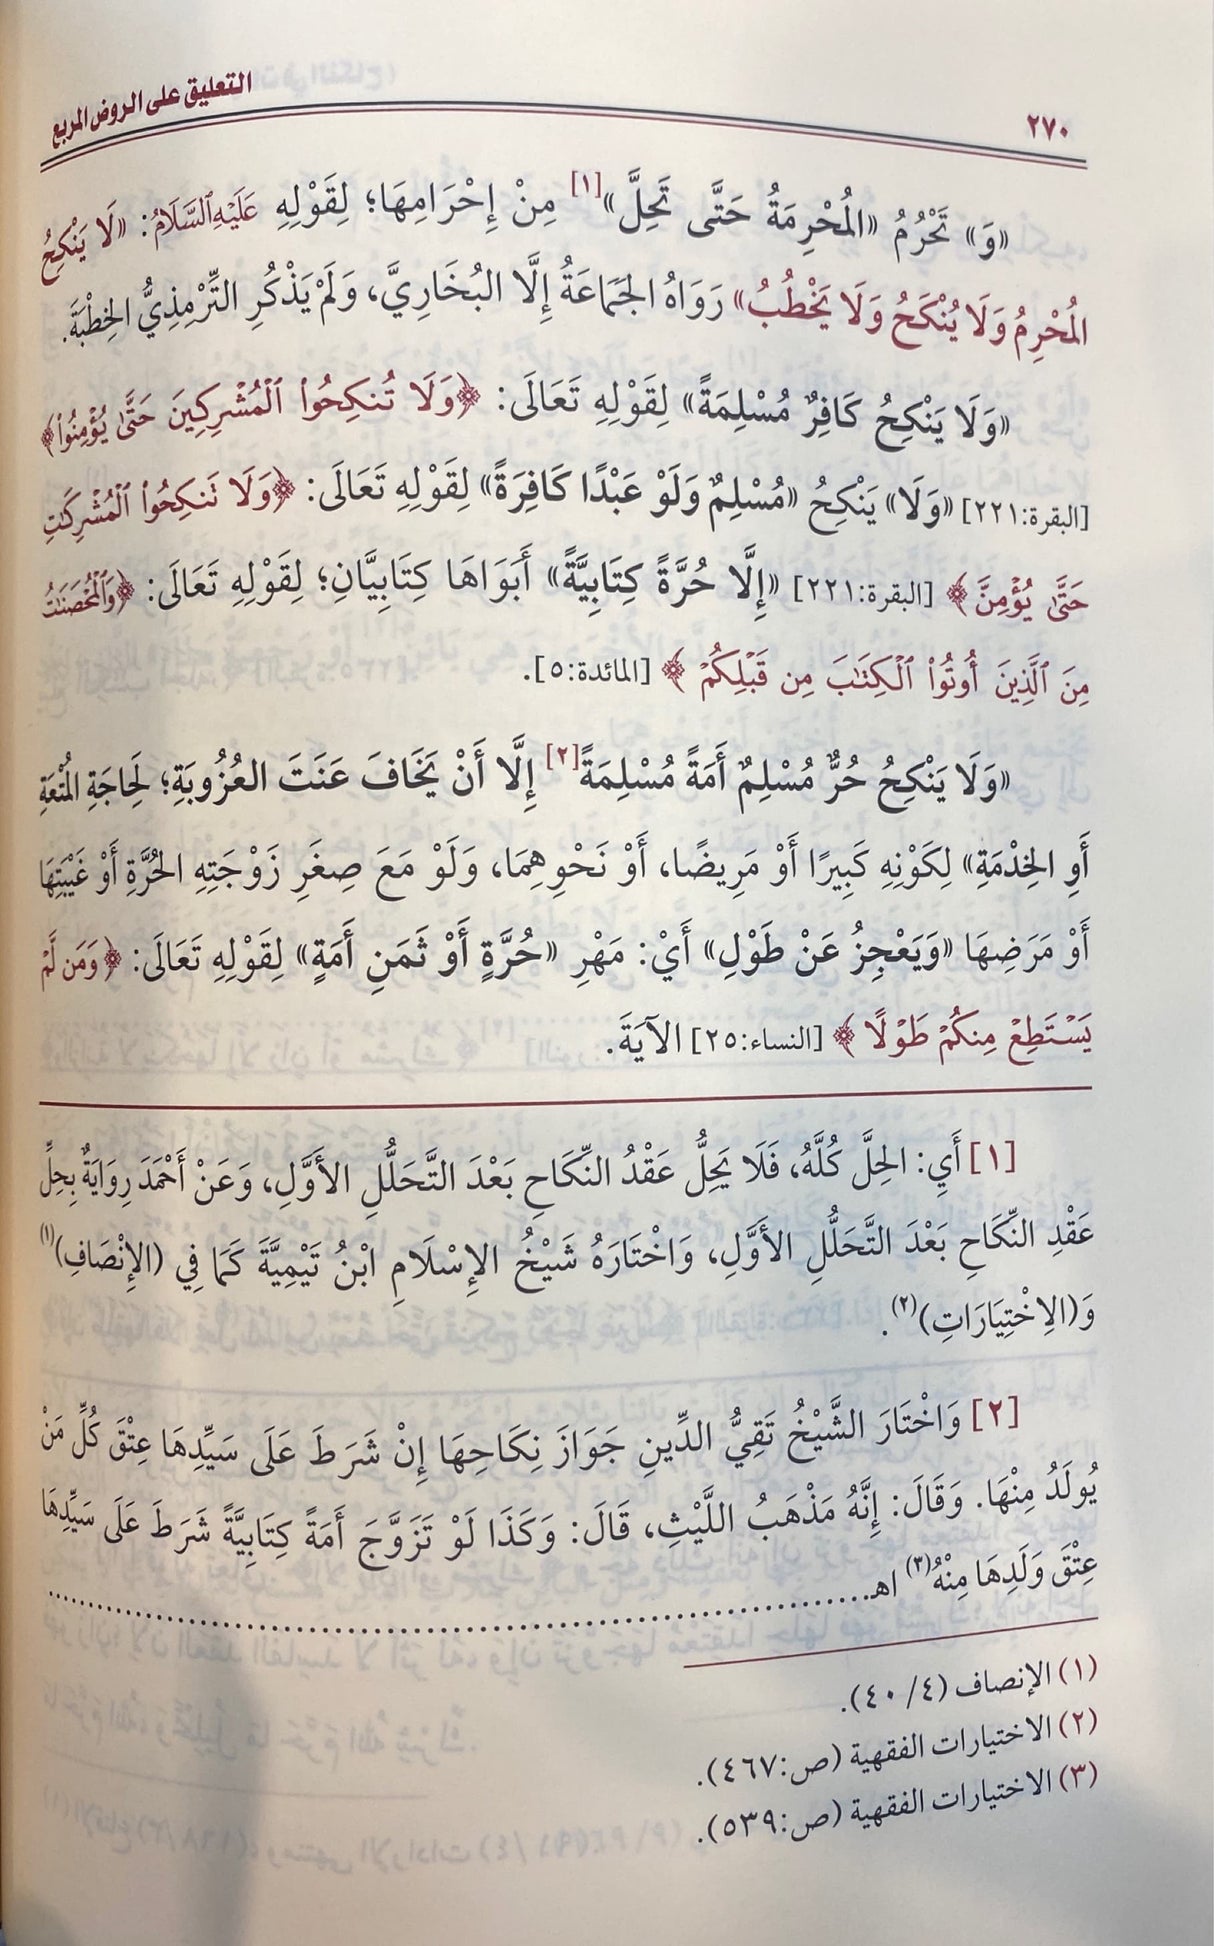 ٢٧٠
التعليق على الروض المربع
«وَ» تَحْرُمُ «المُحْرِمَةُ حَتَّى تَحِلَّ»[١] مِنْ إِحْرَامِهَا؛ لِقَوْلِهِ عَلَيْهِ ٱلسَّلَامُ: «لَا يَنْكِحُ
المُحْرِمُ وَلَا يُنْكَحُ وَلَا يَخْطُبُ» رَوَاهُ الجَمَاعَةُ إِلَّا البُخَارِيَّ، وَلَمْ يَذْكُرِ التِّرْمِذِيُّ الخِطْبَةَ.
«وَلَا يَنْكِحُ كَافِرٌ مُسْلِمَةً» لِقَوْلِهِ تَعَالَى: ﴿وَلَا تُنكِحُوا۟ ٱلْمُشْرِكِينَ حَتَّىٰ يُؤْمِنُوا۟﴾
[البقرة:٢٢١] «وَلَا» يَنْكِحُ «مُسْلِمٌ وَلَوْ عَبْدًا كَافِرَةً» لِقَوْلِهِ تَعَالَى: ﴿وَلَا تَنكِحُوا۟ ٱلْمُشْرِكَٰتِ
حَتَّىٰ يُؤْمِنَّ﴾ [البقرة:٢٢١] «إِلَّا حُرَّةً كِتَابِيَّةً» أَبَوَاهَا كِتَابِيَّانِ؛ لِقَوْلِهِ تَعَالَى: ﴿وَٱلْمُحْصَنَٰتُ
مِنَ ٱلَّذِينَ أُوتُوا۟ ٱلْكِتَٰبَ مِن قَبْلِكُمْ﴾ [المائدة:٥].
«وَلَا يَنْكِحُ حُرٌّ مُسْلِمٌ أَمَةً مُسْلِمَةً[٢] إِلَّا أَنْ يَخَافَ عَنَتَ العُزُوبَةِ؛ لِحَاجَةِ المُتْعَةِ
أَوِ الخِدْمَةِ» لِكَوْنِهِ كَبِيرًا أَوْ مَرِيضًا، أَوْ نَحْوِهِمَا، وَلَوْ مَعَ صِغَرِ زَوْجَتِهِ الحُرَّةِ أَوْ غَيْبَتِهَا
أَوْ مَرَضِهَا «وَيَعْجِزُ عَنْ طَوْلِ» أَيْ: مَهْرِ «حُرَّةٍ أَوْ ثَمَنِ أَمَةٍ» لِقَوْلِهِ تَعَالَى: ﴿وَمَن لَّمْ
يَسْتَطِعْ مِنكُمْ طَوْلًا﴾ [النساء:٢٥] الآيَةَ.
[١] أَيِ: الحِلَّ كُلَّهُ، فَلَا يَحِلُّ عَقْدُ النِّكَاحِ بَعْدَ التَّحَلُّلِ الأَوَّلِ، وَعَنْ أَحْمَدَ رِوَايَةٌ بِحِلِّ
عَقْدِ النِّكَاحِ بَعْدَ التَّحَلُّلِ الأَوَّلِ، وَاخْتَارَهُ شَيْخُ الإِسْلَامِ ابْنُ تَيْمِيَّةَ كَمَا فِي (الإِنْصَافِ)(١)
وَ(الِاخْتِيَارَاتِ)(٢).
[٢] وَاخْتَارَ الشَّيْخُ تَقِيُّ الدِّينِ جَوَازَ نِكَاحِهَا إِنْ شَرَطَ عَلَى سَيِّدِهَا عِتْقَ كُلِّ مَنْ
يُولَدُ مِنْهَا. وَقَالَ: إِنَّهُ مَذْهَبُ اللَّيْثِ، قَالَ: وَكَذَا لَوْ تَزَوَّجَ أَمَةً كِتَابِيَّةً شَرَطَ عَلَى سَيِّدِهَا
عِتْقَ وَلَدِهَا مِنْهُ(٣) اهـ..........................................................
(١) الإنصاف (٤/ ٤٠).
(٢) الاختيارات الفقهية (ص:٤٦٧).
(٣) الاختيارات الفقهية (ص:٥٣٩).